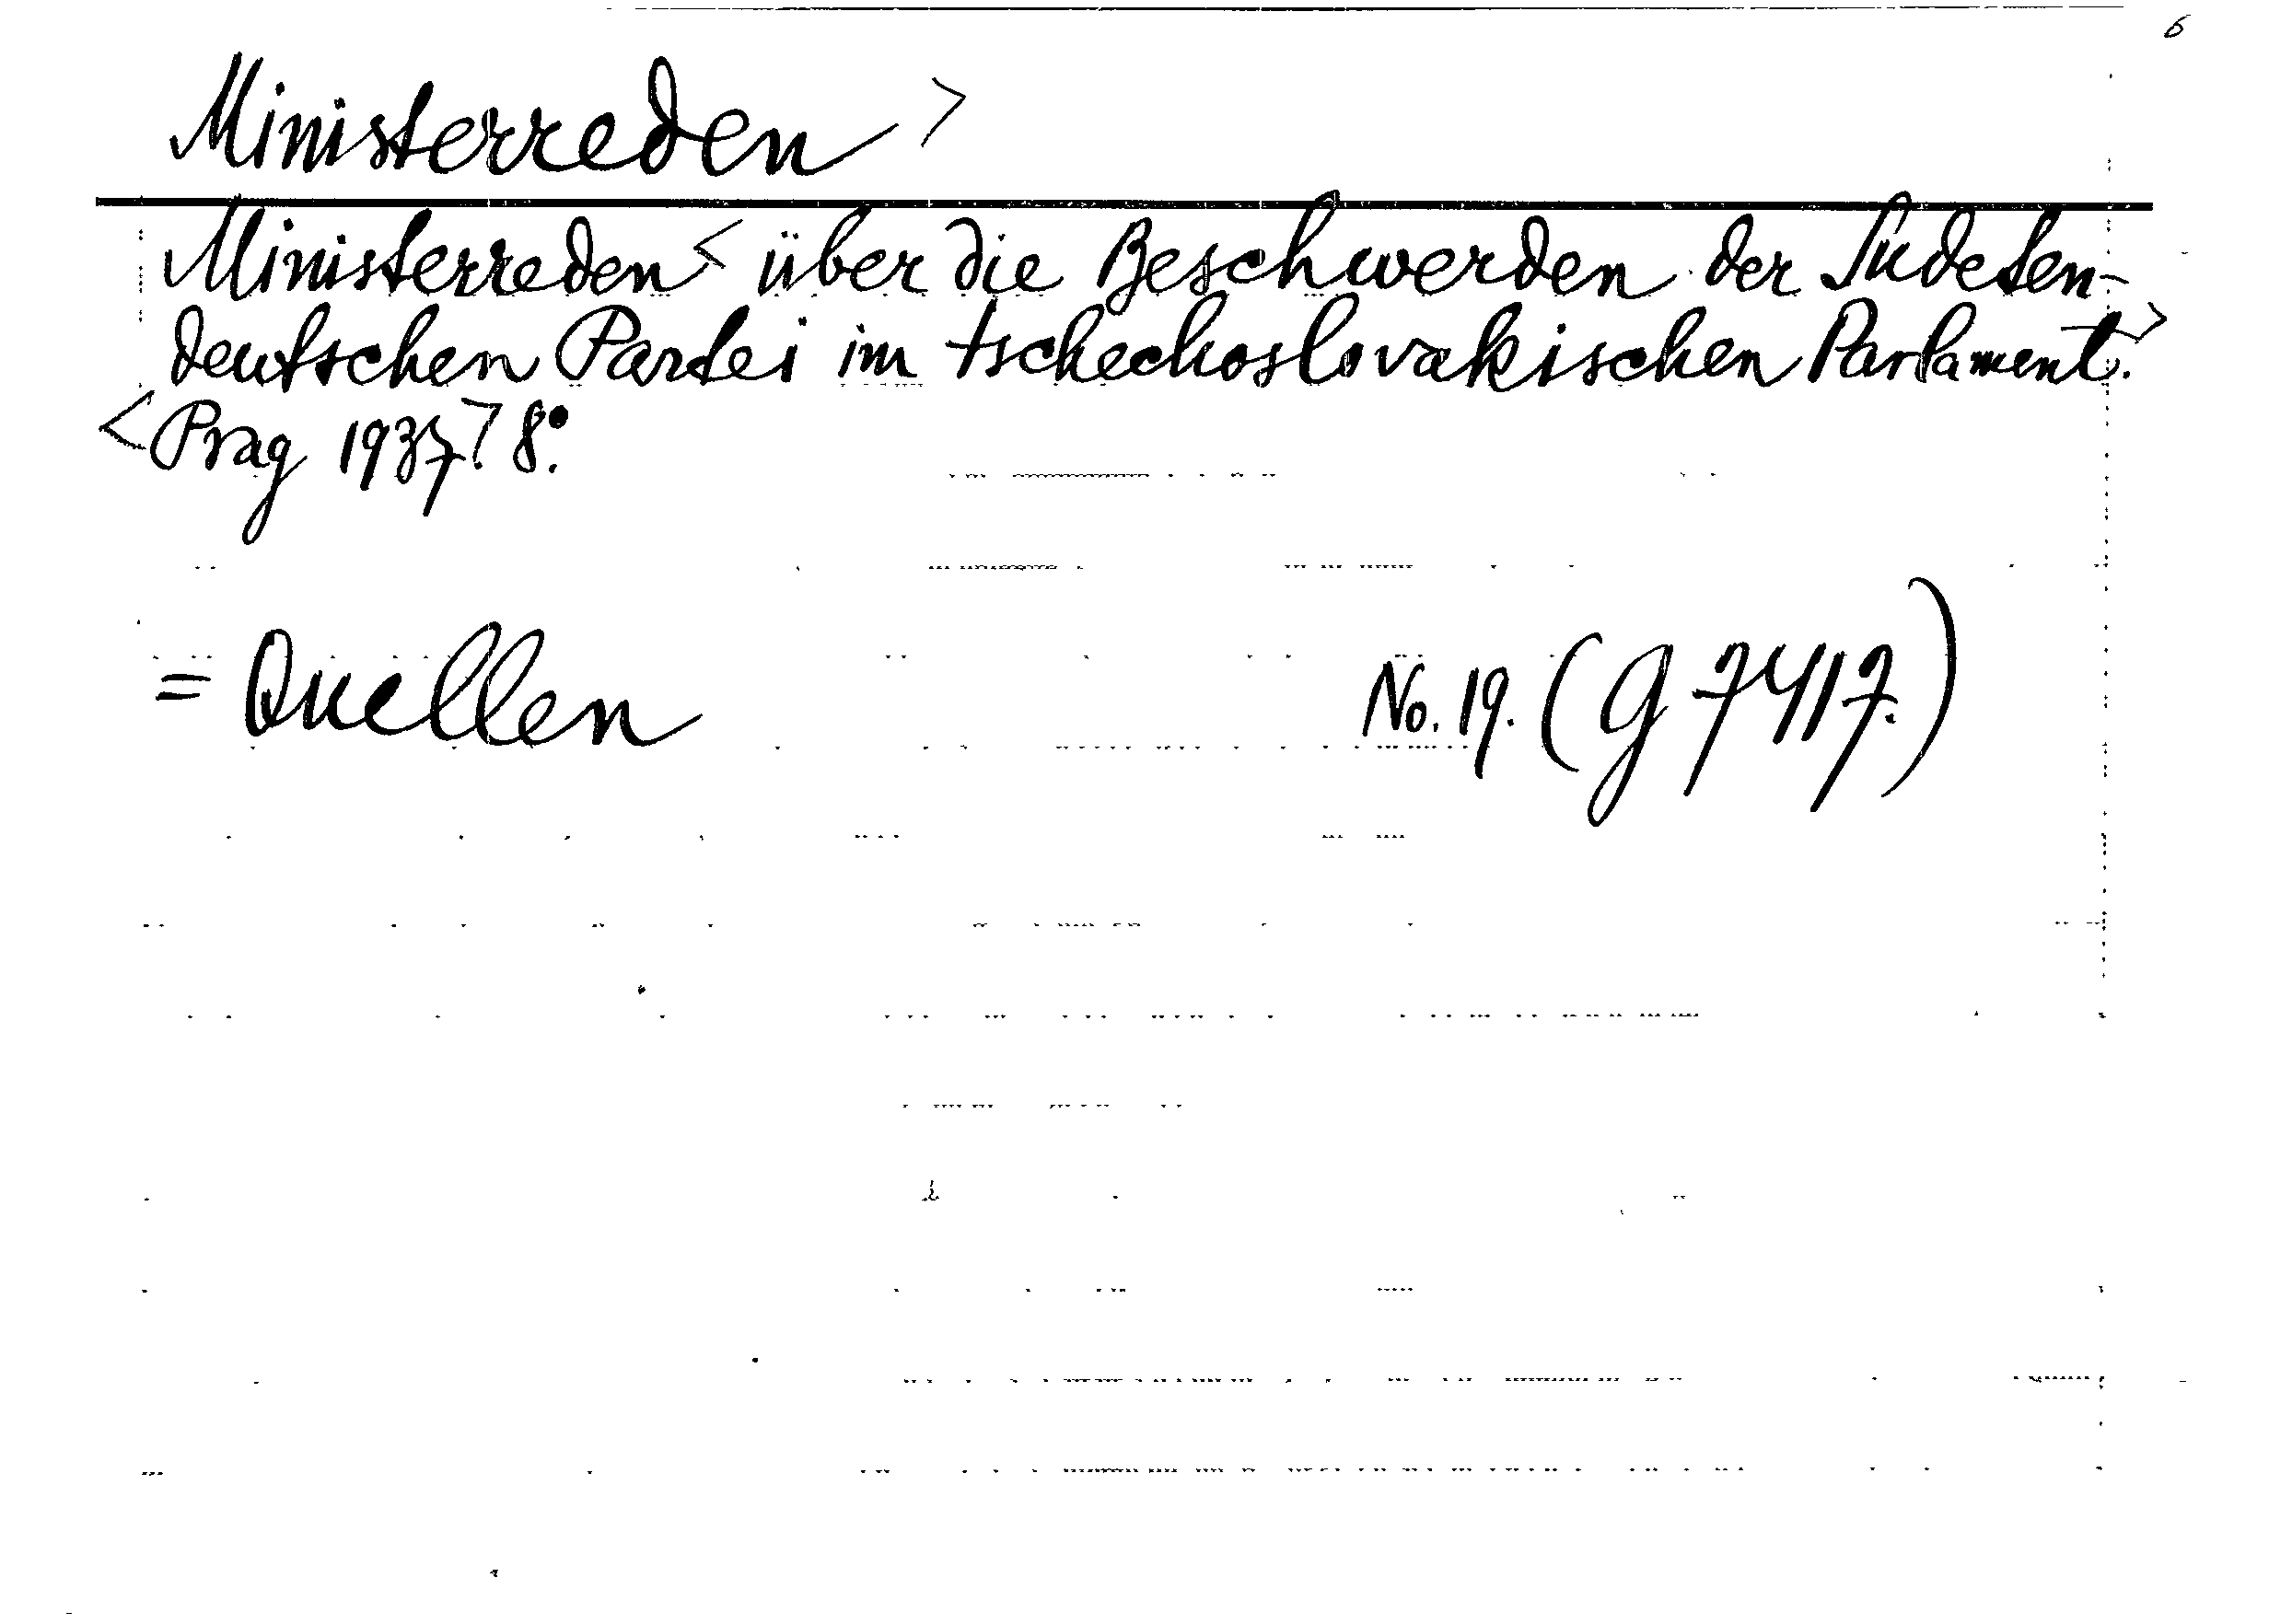 6
Ministerreden >
Ministerreden < über die Beschwerden der Sudeten-
deutschen Partei im tschechoslovakischen Parlament. >
< Prag 1937 > 8°.
= Quellen No. 19. (G 7417.)